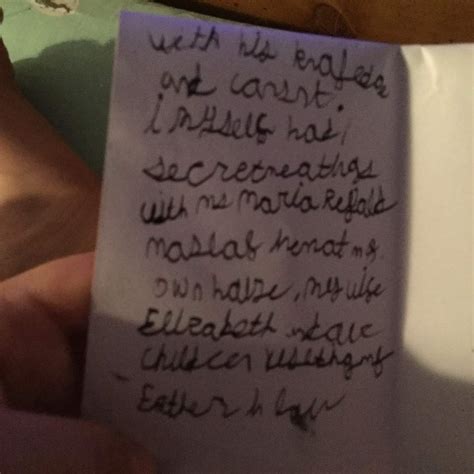 with his knafedge
and consnt.
i myself had
secretneathgs
with ms Maria Reflald
maslaf hemat my
own halse, my wife
Ellzabeth nd our
children
Father n law